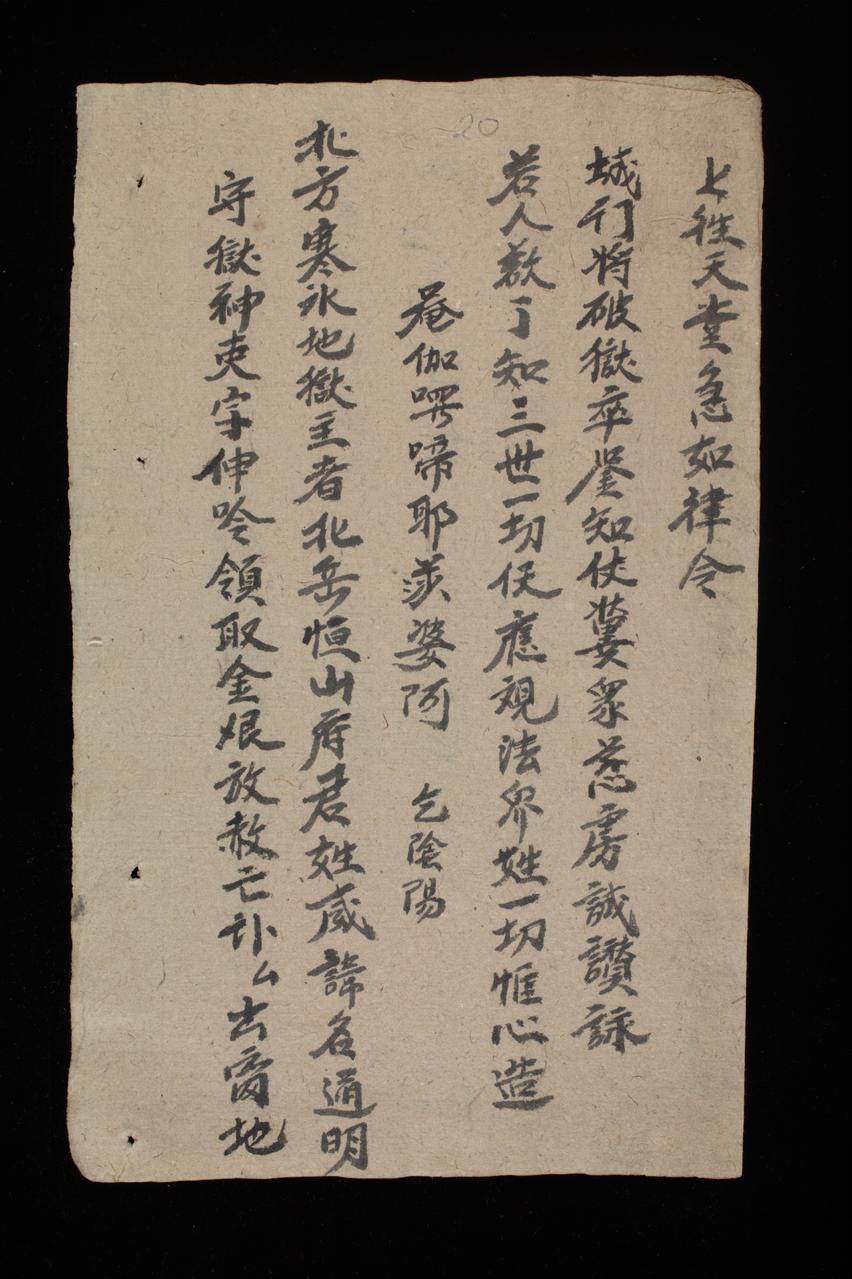 上徃天堂急如律令
城门將破獄卒鉴知仗䒷衆慈雩誠讚詠
若人欲了知三世一切仸應視法界姓一切惟心造
菴伽哶啼耶莎婆阿 乞陰陽
北方寒氷地獄主者北岳恒山府君姓咸諱名道明
守獄神吏字伸呤領取金姄放赦亡䚯厶出离地
20